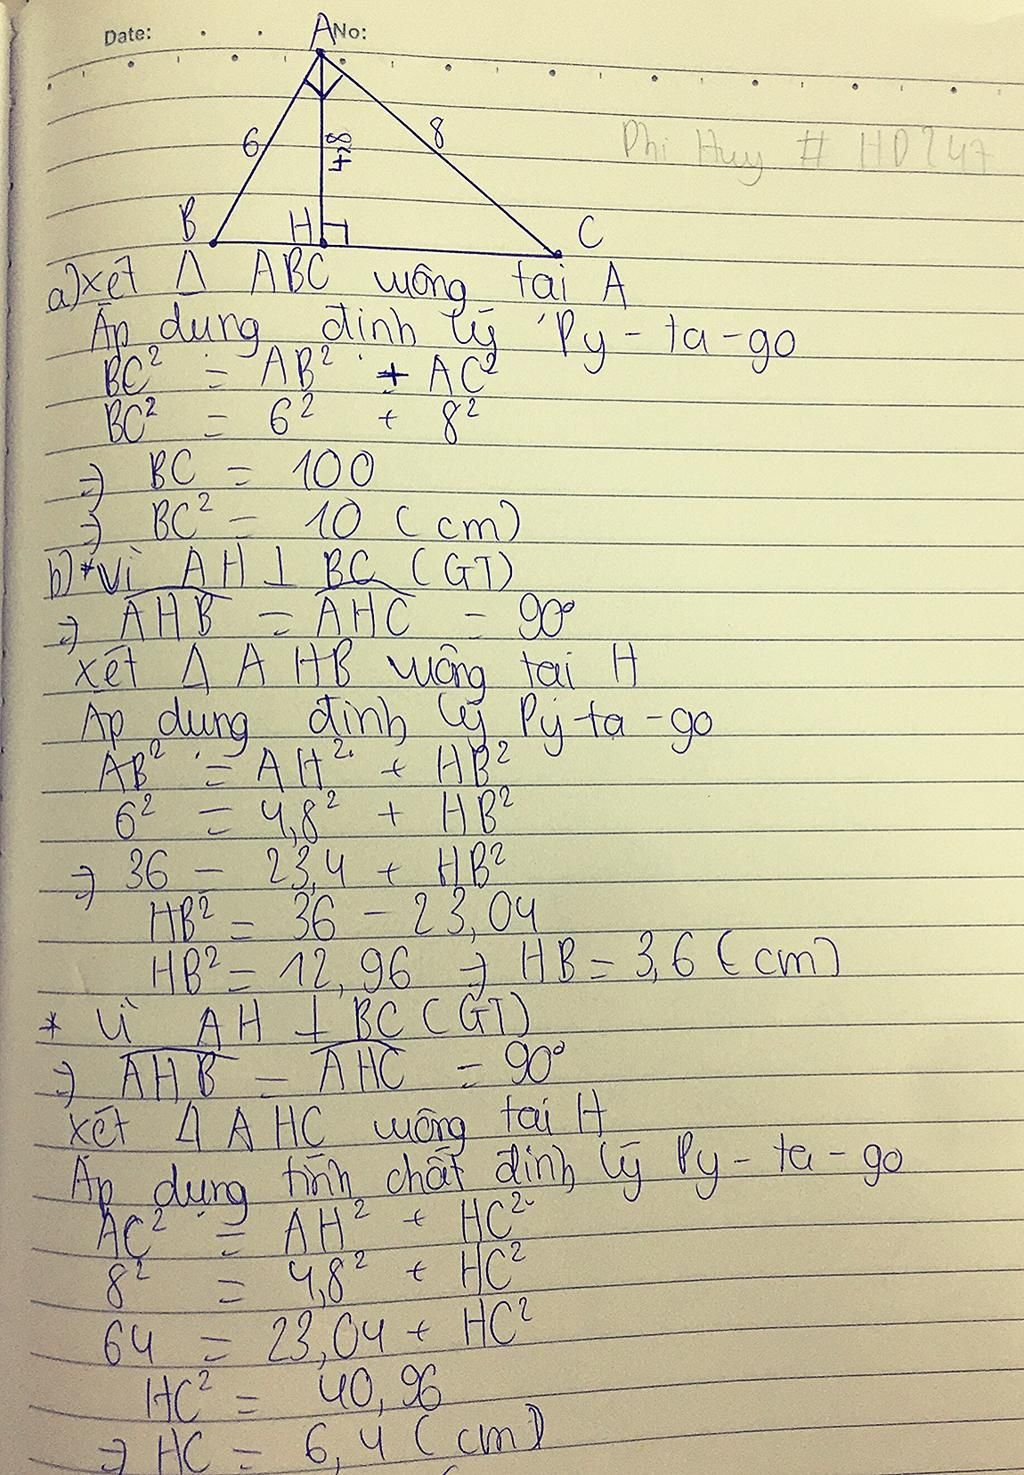 Date: No:
A
6
8
4,8
Phi Huy # HD247
B H C
a) xét Δ ABC vuông tại A
Áp dụng định lý Py-ta-go
BC² = AB² + AC²
BC² = 6² + 8²
=> BC = 100
=> BC² = 10 (cm)
b) * vì AH ⊥ BC (GT)
=> AHB = AHC = 90°
xét Δ AHB vuông tại H
Áp dụng định lý Py-ta-go
AB² = AH² + HB²
6² = 4,8² + HB²
=> 36 = 23,4 + HB²
HB² = 36 - 23,04
HB² = 12,96 => HB = 3,6 (cm)
* vì AH ⊥ BC (GT)
=> AHB = AHC = 90°
xét Δ AHC vuông tại H
Áp dụng tính chất định lý Py-ta-go
AC² = AH² + HC²
8² = 4,8² + HC²
64 = 23,04 + HC²
HC² = 40,96
=> HC = 6,4 (cm)